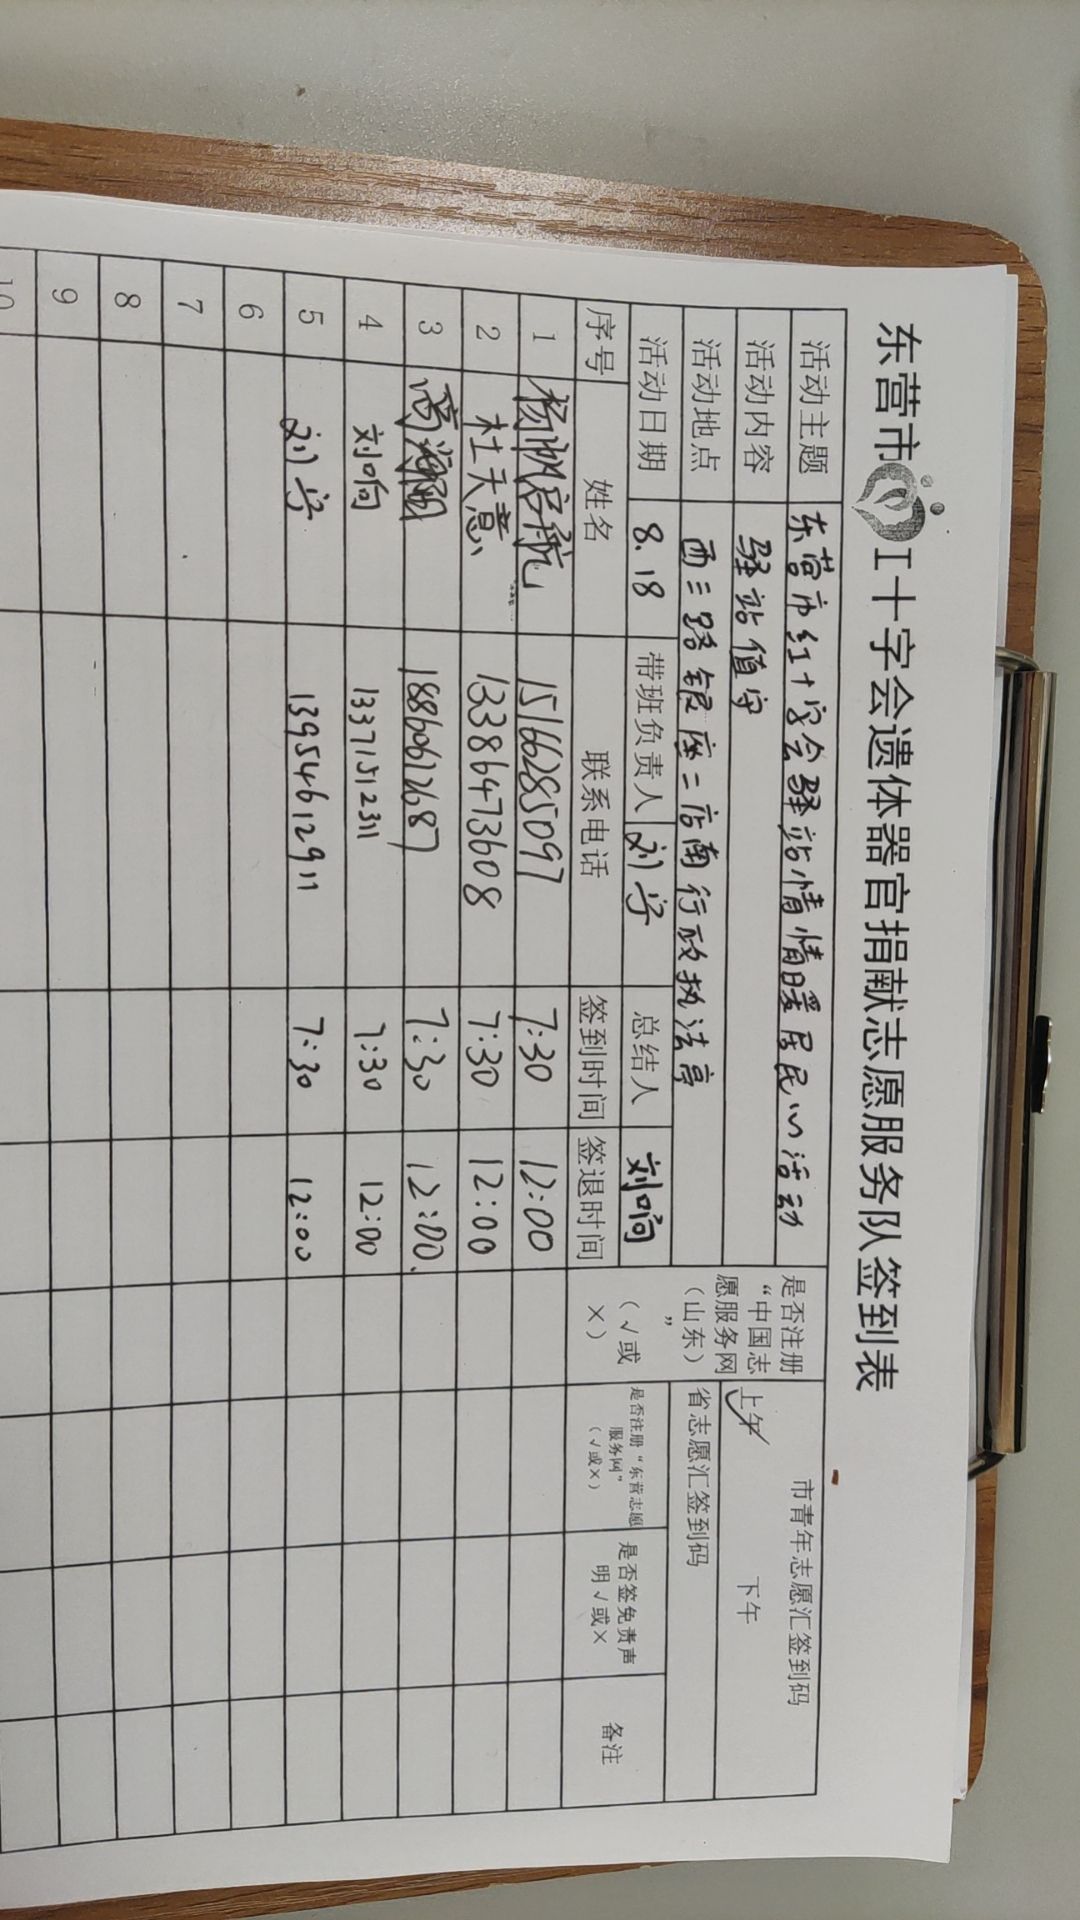 东营市 工十字会遗体器官捐献志愿服务队签到表
活动主题 东营市红十字会驿站情情暖居民心活动 是否注册“中国志愿服务网（山东）”（√或×） 市青年志愿汇签到码
活动内容 驿站值守 上午 下午
活动地点 西三路银座二店南行政执法亭 省志愿汇签到码
活动日期 8.18 带班负责人 刘宁 总结人 刘响
序号 姓名 联系电话 签到时间 签退时间 是否注册“东营志愿服务网”（√或×） 是否签免责声明√或× 备注
1 杨帆启航 15166285097 7:30 12:00
2 杜天意 13386473608 7:30 12:00
3 18860612687 7:30 12:00
4 刘响 13371512311 7:30 12:00
5 刘宁 13954612911 7:30 12:00
6
7
8
9
10